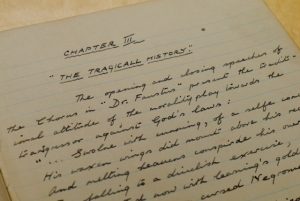 CHAPTER III.
"THE TRAGICALL HISTORY."
The opening and closing speeches of
the Chorus in "Dr. Faustus" present the tradit-
ional attitude of the morality play towards the
transgressor against God's laws:
"... Swolne with cunning, of a selfe conceit
His waxen wings did mount above his re
And melting heavens conspirde his over
falling to a divelish exercise,
now with learning's gold
cursed Negrom